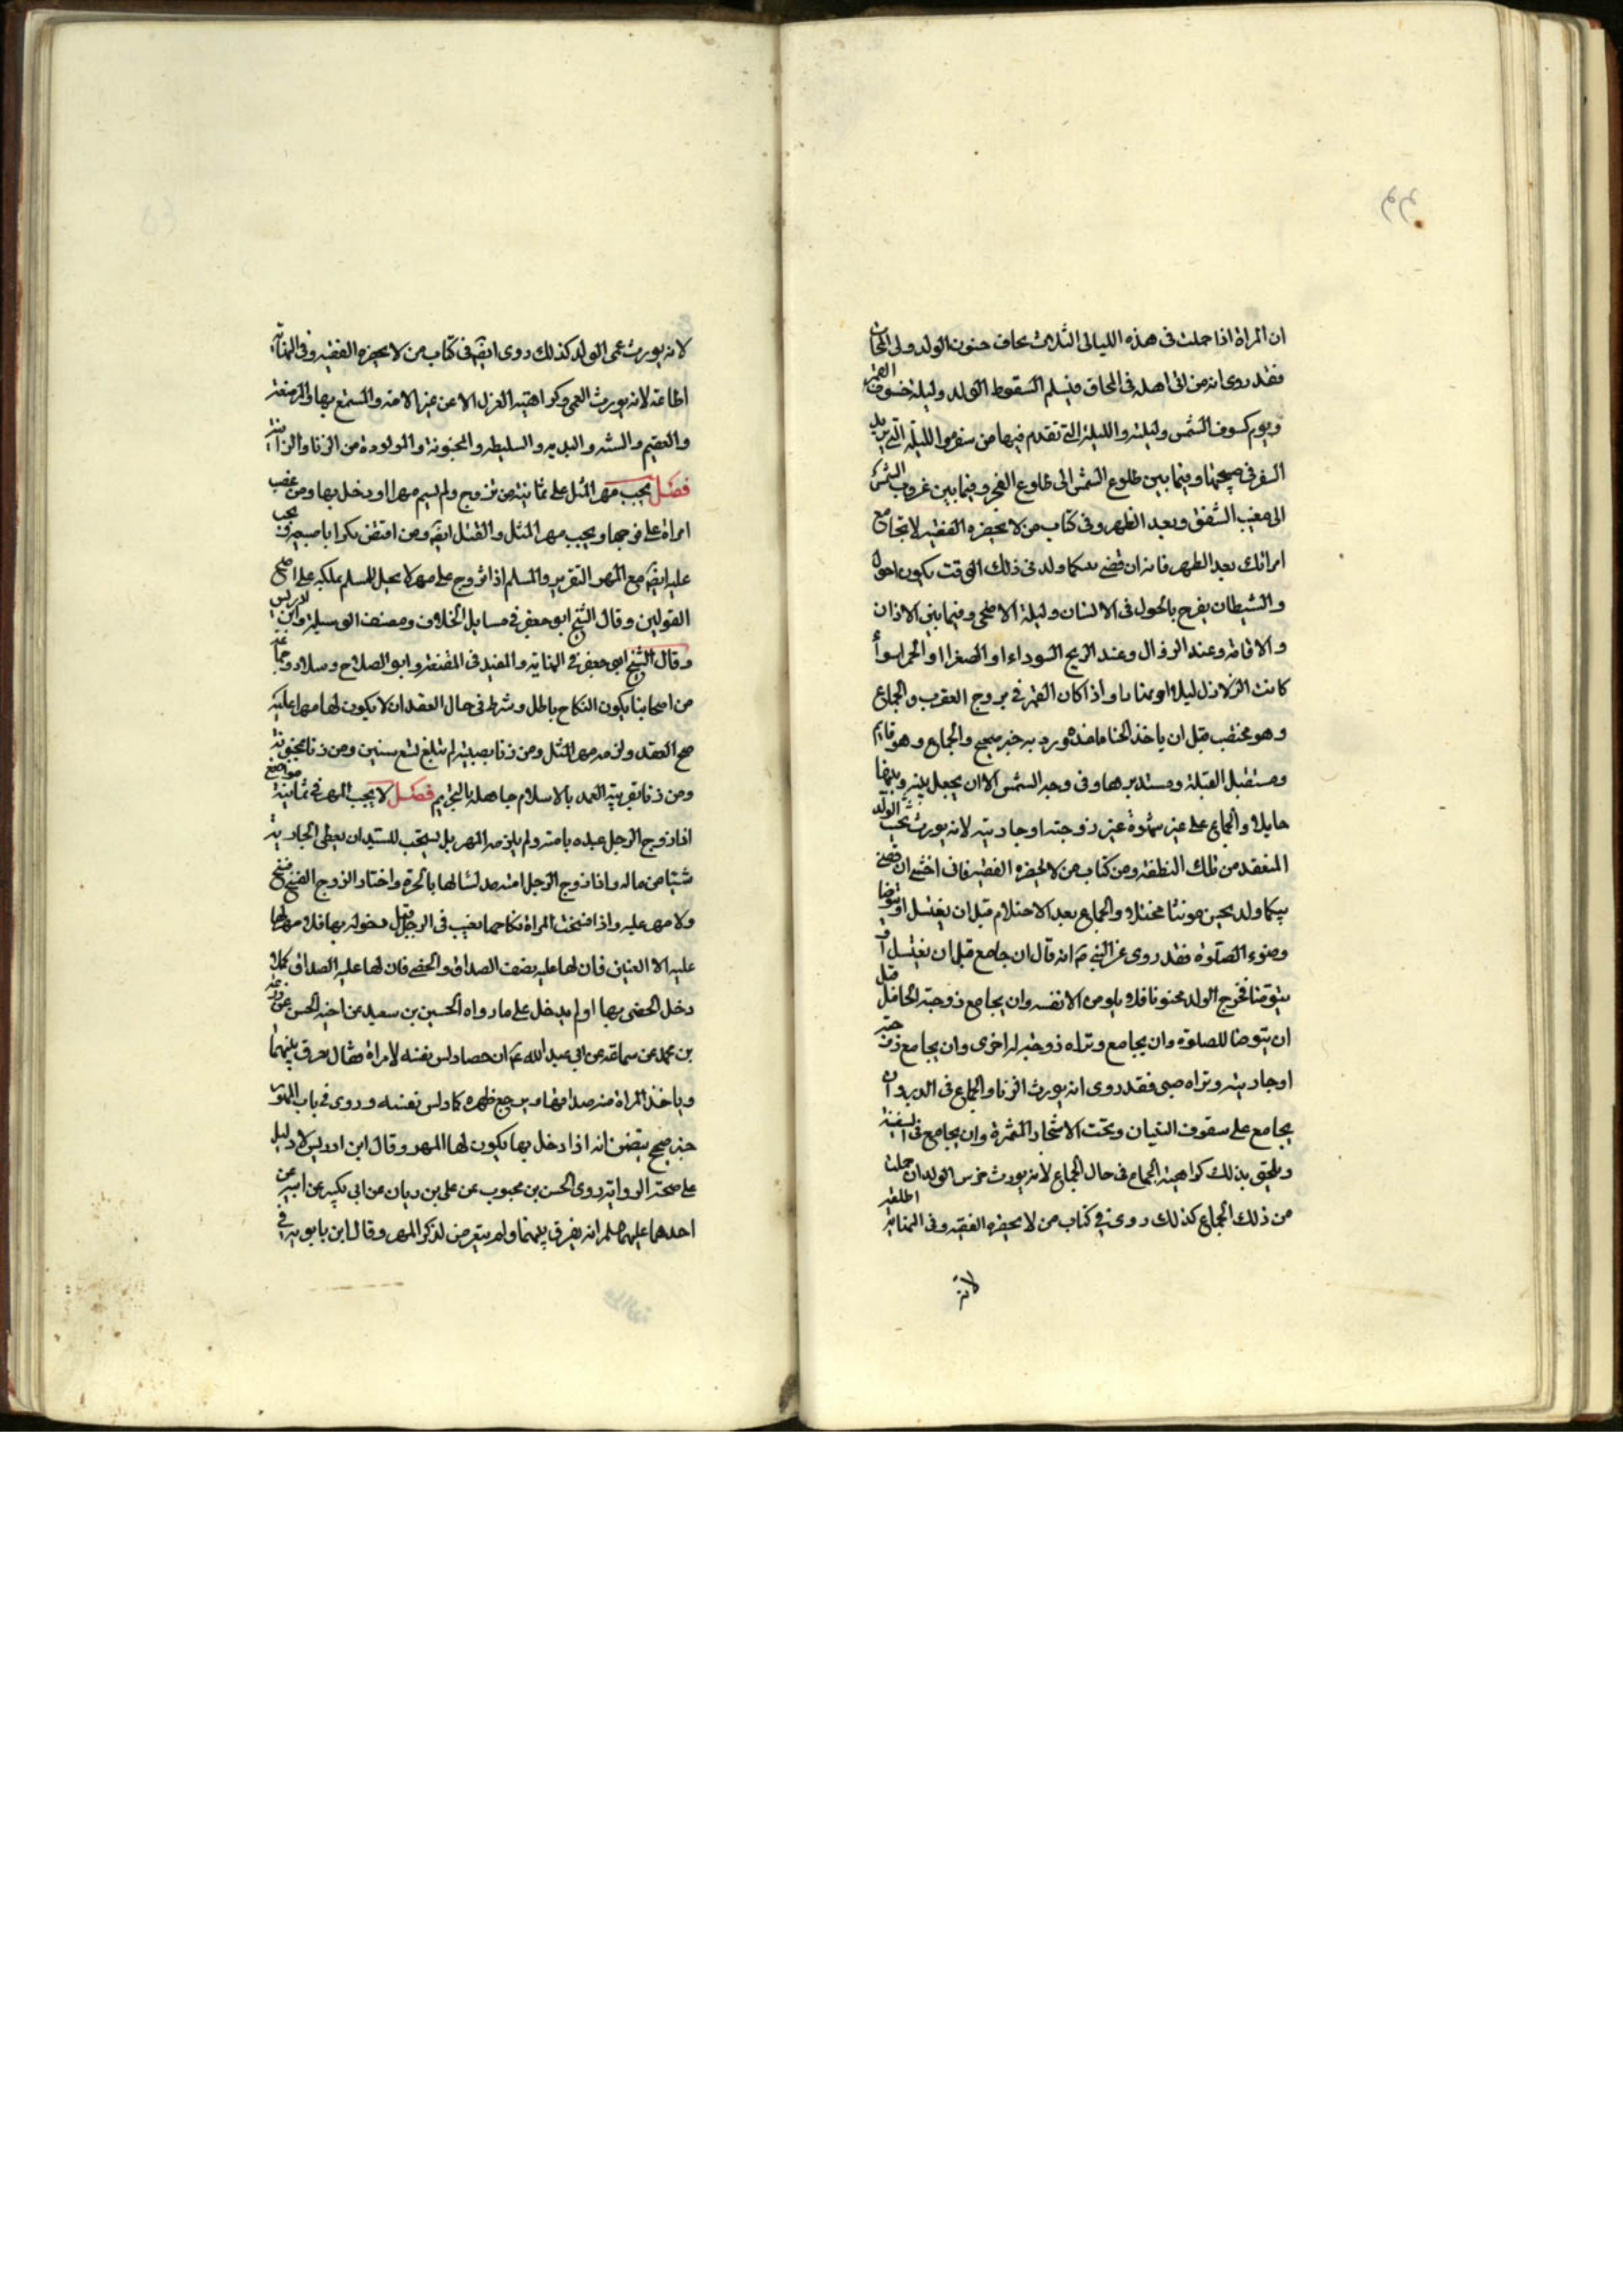 ان المراة اذا حملت فى هذه الليالى الثلاث يخاف جنون الولد وفى المحاق
فقد روى انه من اتى اهله فى المحاق فليسلم السقوط الولد وليلة خسوف القمر
ويوم كسوف الشمس وليلته والليلة التى تقدم فيها من سفره والليلة التى يريد
السفر فى صبيحتها وفيما بين طلوع الشمس الى طلوع الفجر وفيما بين غروب الشمس
الى مغيب الشفق وبعد الظهر وفى كتاب من لا يحضره الفقيه لا تجامع
امراتك بعد الظهر فانه ان قضى بينكما ولد فى ذلك الوقت يكون احول
والشيطان يفرح بالحول فى الانسان وليلة الاضحى وفيما بين الاذان
والاقامة وعند الزوال وعند الريح السوداء او الصفرا او الحمرا سوأ
كانت الزلازل ليلا او نهارا واذا كان القمر فى بروج العقرب والجماع
وهو مختضب قبل ان ياخذ الحنا ماخذه ورد به خبر صحيح والجماع وهو قايم
ومستقبل القبلة ومستدبرها وفى وجه الشمس الا ان يجعل بينه وبينها
حايلا والجماع على غير شهوة غير زوجته او جاريته لانه يورث الولد
المنعقد من تلك النطفة ومن كتاب من لا يحضره الفقيه فانى اخشى ان قضى
بينكما ولد يحين مونثا مخنثا والجماع بعد الاحتلام قبل ان يغتسل او يتوضا
وضوء الصلوة فقد روى عن النبى ص انه قال ان جامع قبل ان يغتسل او
يتوضا فخرج الولد مجنونا فلا يلومن الا نفسه وان يجامع زوجته الحامل قبل
ان يتوضا للصلوة وان يجامع وتراه زوجة له اخرى وان يجامع زوجته
او جاريته ويراه صبى فقد روى انه يورث الزنا والجماع فى الدبر وان
يجامع على سقوف البنيان وتحت الاشجار المثمرة وان يجامع فى السفينة
ويلحق بذلك كراهية الجماع فى حال الجماع لانه يورث خرس الولد ان حملت
من ذلك الجماع كذلك روى فى كتاب من لا يحضره الفقيه وفى النهاية
لانه
لانه يورث عمى الولد كذلك روى ايضا فى كتاب من لا يحضره الفقيه وفى النهاية
اطلاعه لانه يورث العمى وكراهية العزل الا عن غير الامة والمتمتع بها والمرضعة
والعقيم والمسنة والبدية والسليطة والمجنونة والمولودة من الزنا والزانية
فصل يجب مهر المثل على ثمانية من تزوج ولم يسم مهرا ودخل بها ومن غصب
امراة على فرجها ويجب مهر المثل والقتل ايضا ومن افتض بكرا باصبعه يجب
عليه ايضا مع المهر التعزير والمسلم اذا تزوج على مهر لا يحل للمسلم تملكه على اصح
القولين وقال الشيخ ابو جعفر فى مسايل الخلاف ومصنف الوسيلة وابن ادريس
وقال الشيخ ابى جعفر فى النهاية والمفيد فى المقنعة وابو الصلاح وسلار وجماعة
من اصحابنا يكون النكاح باطل وشرط فى حال العقد ان لا يكون لها مهرا عليه
صح العقد ولزمه مهر المثل ومن زنا بصبية لم تبلغ تسع سنين ومن زنا بمجنونة
ومن زنا بقريبة العهد بالاسلام جاهلة بالتحريم فصل لا يجب المهر فى ثمانية مواضع
اذا زوج الرجل عبده بامته ولم يلزمه المهر بل يستحب للسيد ان يعطى الجارية
شيئا من ماله واذا زوج الرجل امته بالحرة واختار الزوج الفسخ فسخ
ولا مهر عليه واذا فسخت المراة نكاحها بعيب فى الرجل قبل دخوله بها فلا مهر لها
عليه الا العنين فان لها عليه نصف الصداق والخصى فان لها عليه الصداق كملا
دخل الخصى بها او لم يدخل على ما رواه الحسين بن سعيد عن اخيه الحسن عن زرعة
بن محمد عن سماعة عن ابى عبد الله ع ان خصيا دلس نفسه لامراة فقال يفرق بينهما
وياخذ المراة منه صداقها ويوجع ظهره كما دلس نفسه وروى فى باب
خبر صحيح يتضمن انه اذا دخل بها يكون لها المهر وقال ابن ادريس لا دليل
على صحة الرواية روى الحسن بن محبوب عن على بن رياب عن ابن بكير عن ابيه عن
احدهما عليهما السلم انه يفرق بينهما ولم يتعرض لذكر المهر وقال ابن بابويه فى